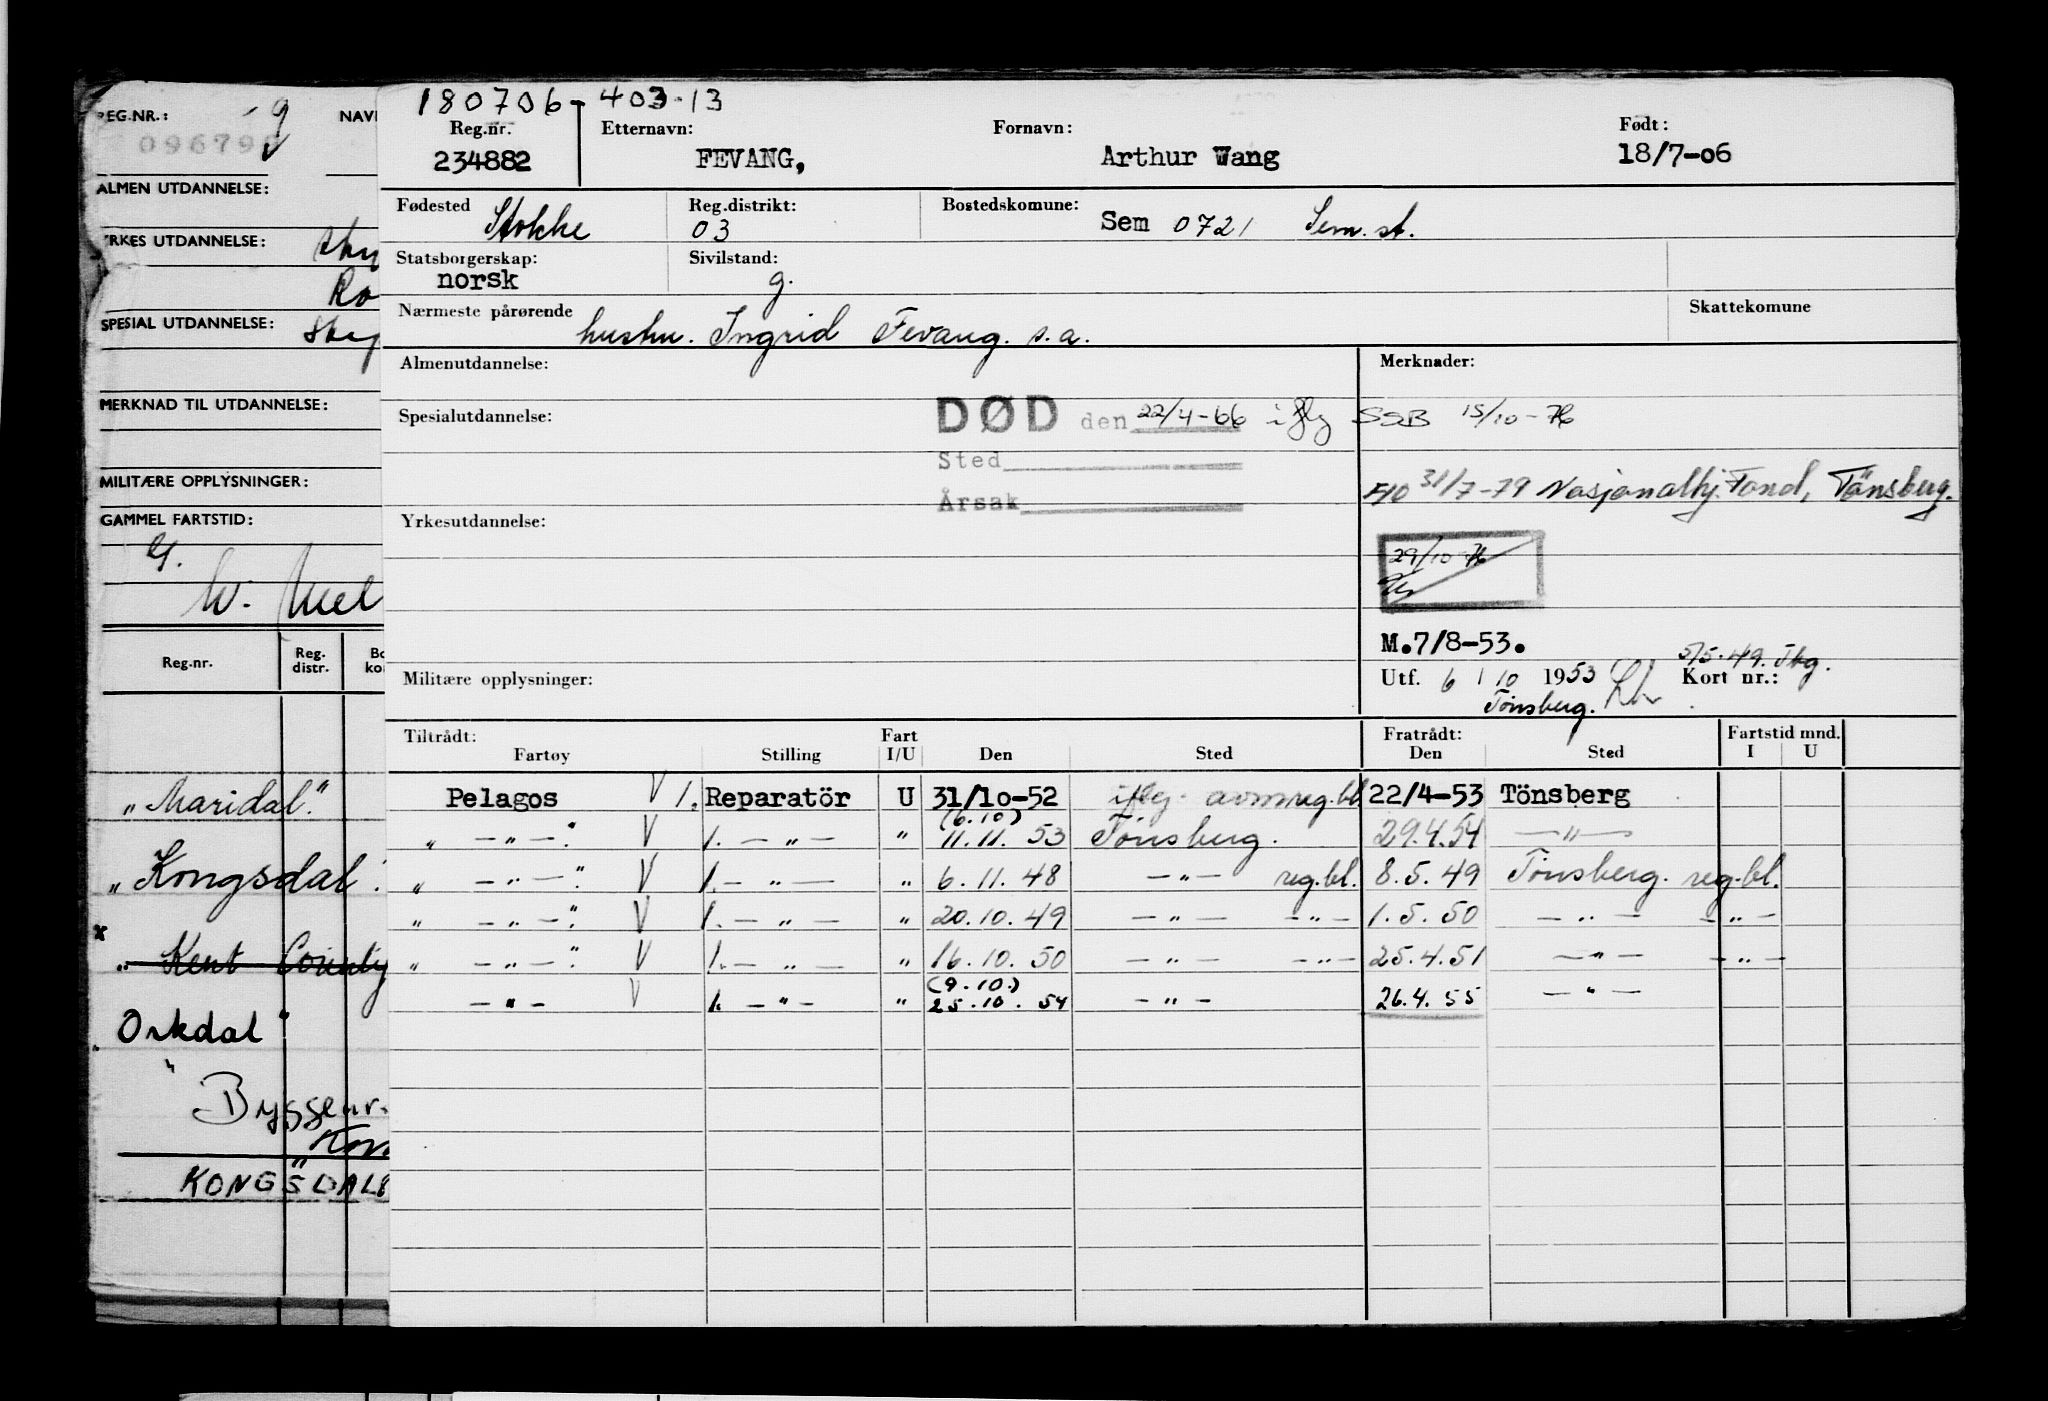 REG.NR.: 9 NAV
09679
ALMEN UTDANNELSE:
YRKES UTDANNELSE:
Ro
SPESIAL UTDANNELSE:
MERKNAD TIL UTDANNELSE:
MILITÆRE OPPLYSNINGER:
GAMMEL FARTSTID:
W.
Reg.nr. Reg. distr. Bo ko
"Maridal."
"Kongsdal".
x
" Kent County
Orkdal"
" Byggenr.
KONGSDAL
180706-403-13
Reg.nr. Etternavn: Fornavn: Født:
234882 FEVANG, Arthur Wang 18/7-06
Fødested Stokke Reg.distrikt: 03 Bostedskomune: Sem 0721 Sem. st.
Statsborgerskap: norsk Sivilstand: g.
Nærmeste pårørende hustru. Ingrid Fevang. s.a. Skattekomune
Almenutdannelse: Merknader:
Spesialutdannelse: DØD den 22/4-66 iflg SSB 15/10-76
Sted
Årsak
31/7-79 Nasjonalhj. Fond, Tönsberg.
Yrkesutdannelse:
29/10-76
M.7/8-53.
5/5.49. Tbg.
Militære opplysninger: Utf. 6 / 10 1953 Kort nr.:
Tönsberg.
Tiltrådt: Fart Fratrådt: Fartstid mnd.
Fartøy Stilling I/U Den Sted Den Sted I U
Pelagos V 1. Reparatör U 31/10-52 iflg. avmreg.bl. 22/4-53 Tönsberg
" — " — " V 1. — " — " (6.10) 11.11. 53 Tönsberg. 29.4.54 — " —
" — " — " V 1. — " — " 6.11. 48 — " — reg.bl. 8.5.49 Tönsberg. reg.bl.
" — " — " V 1. — " — " 20.10. 49 — " — — " — 1.5.50 — " — — " —
" — " — " V 1. — " — " 16.10. 50 — " — — " — 25.4.51 — " — — " —
— " — V 1. — " — " (9.10.) 25.10. 54 — " — 26.4.55 — " —